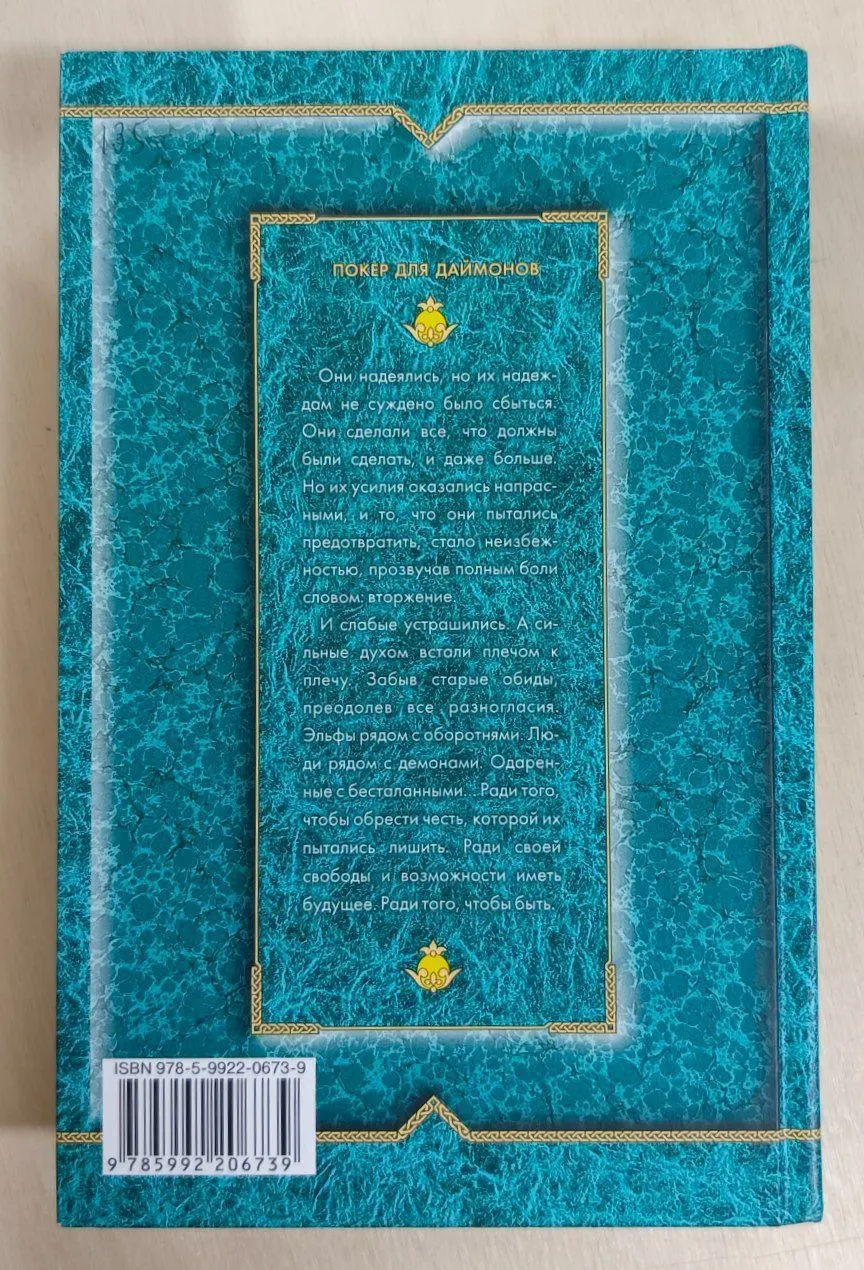 135
ПОКЕР ДЛЯ ДАЙМОНОВ
Они надеялись, но их надеж-
дам не суждено было сбыться.
Они сделали все, что должны
были сделать, и даже больше.
Но их усилия оказались напрас-
ными, и то, что они пытались
предотвратить, стало неизбеж-
ностью, прозвучав полным боли
словом: вторжение.
И слабые устрашились. А си-
льные духом встали плечом к
плечу. Забыв старые обиды,
преодолев все разногласия.
Эльфы рядом с оборотнями. Лю-
ди рядом с демонами. Одарен-
ные с бесталанными... Ради того,
чтобы обрести честь, которой их
пытались лишить. Ради своей
свободы и возможности иметь
будущее. Ради того, чтобы быть.
ISBN 978-5-9922-0673-9
9 785992 206739